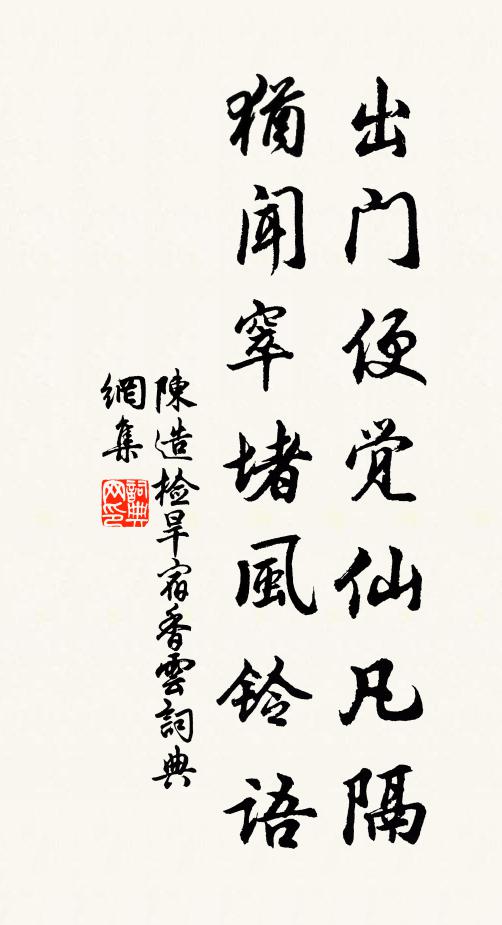 出门便觉仙凡隔
犹闻窣堵風铃语
陳造检旱宿香雲詞典
網集
詞典網印